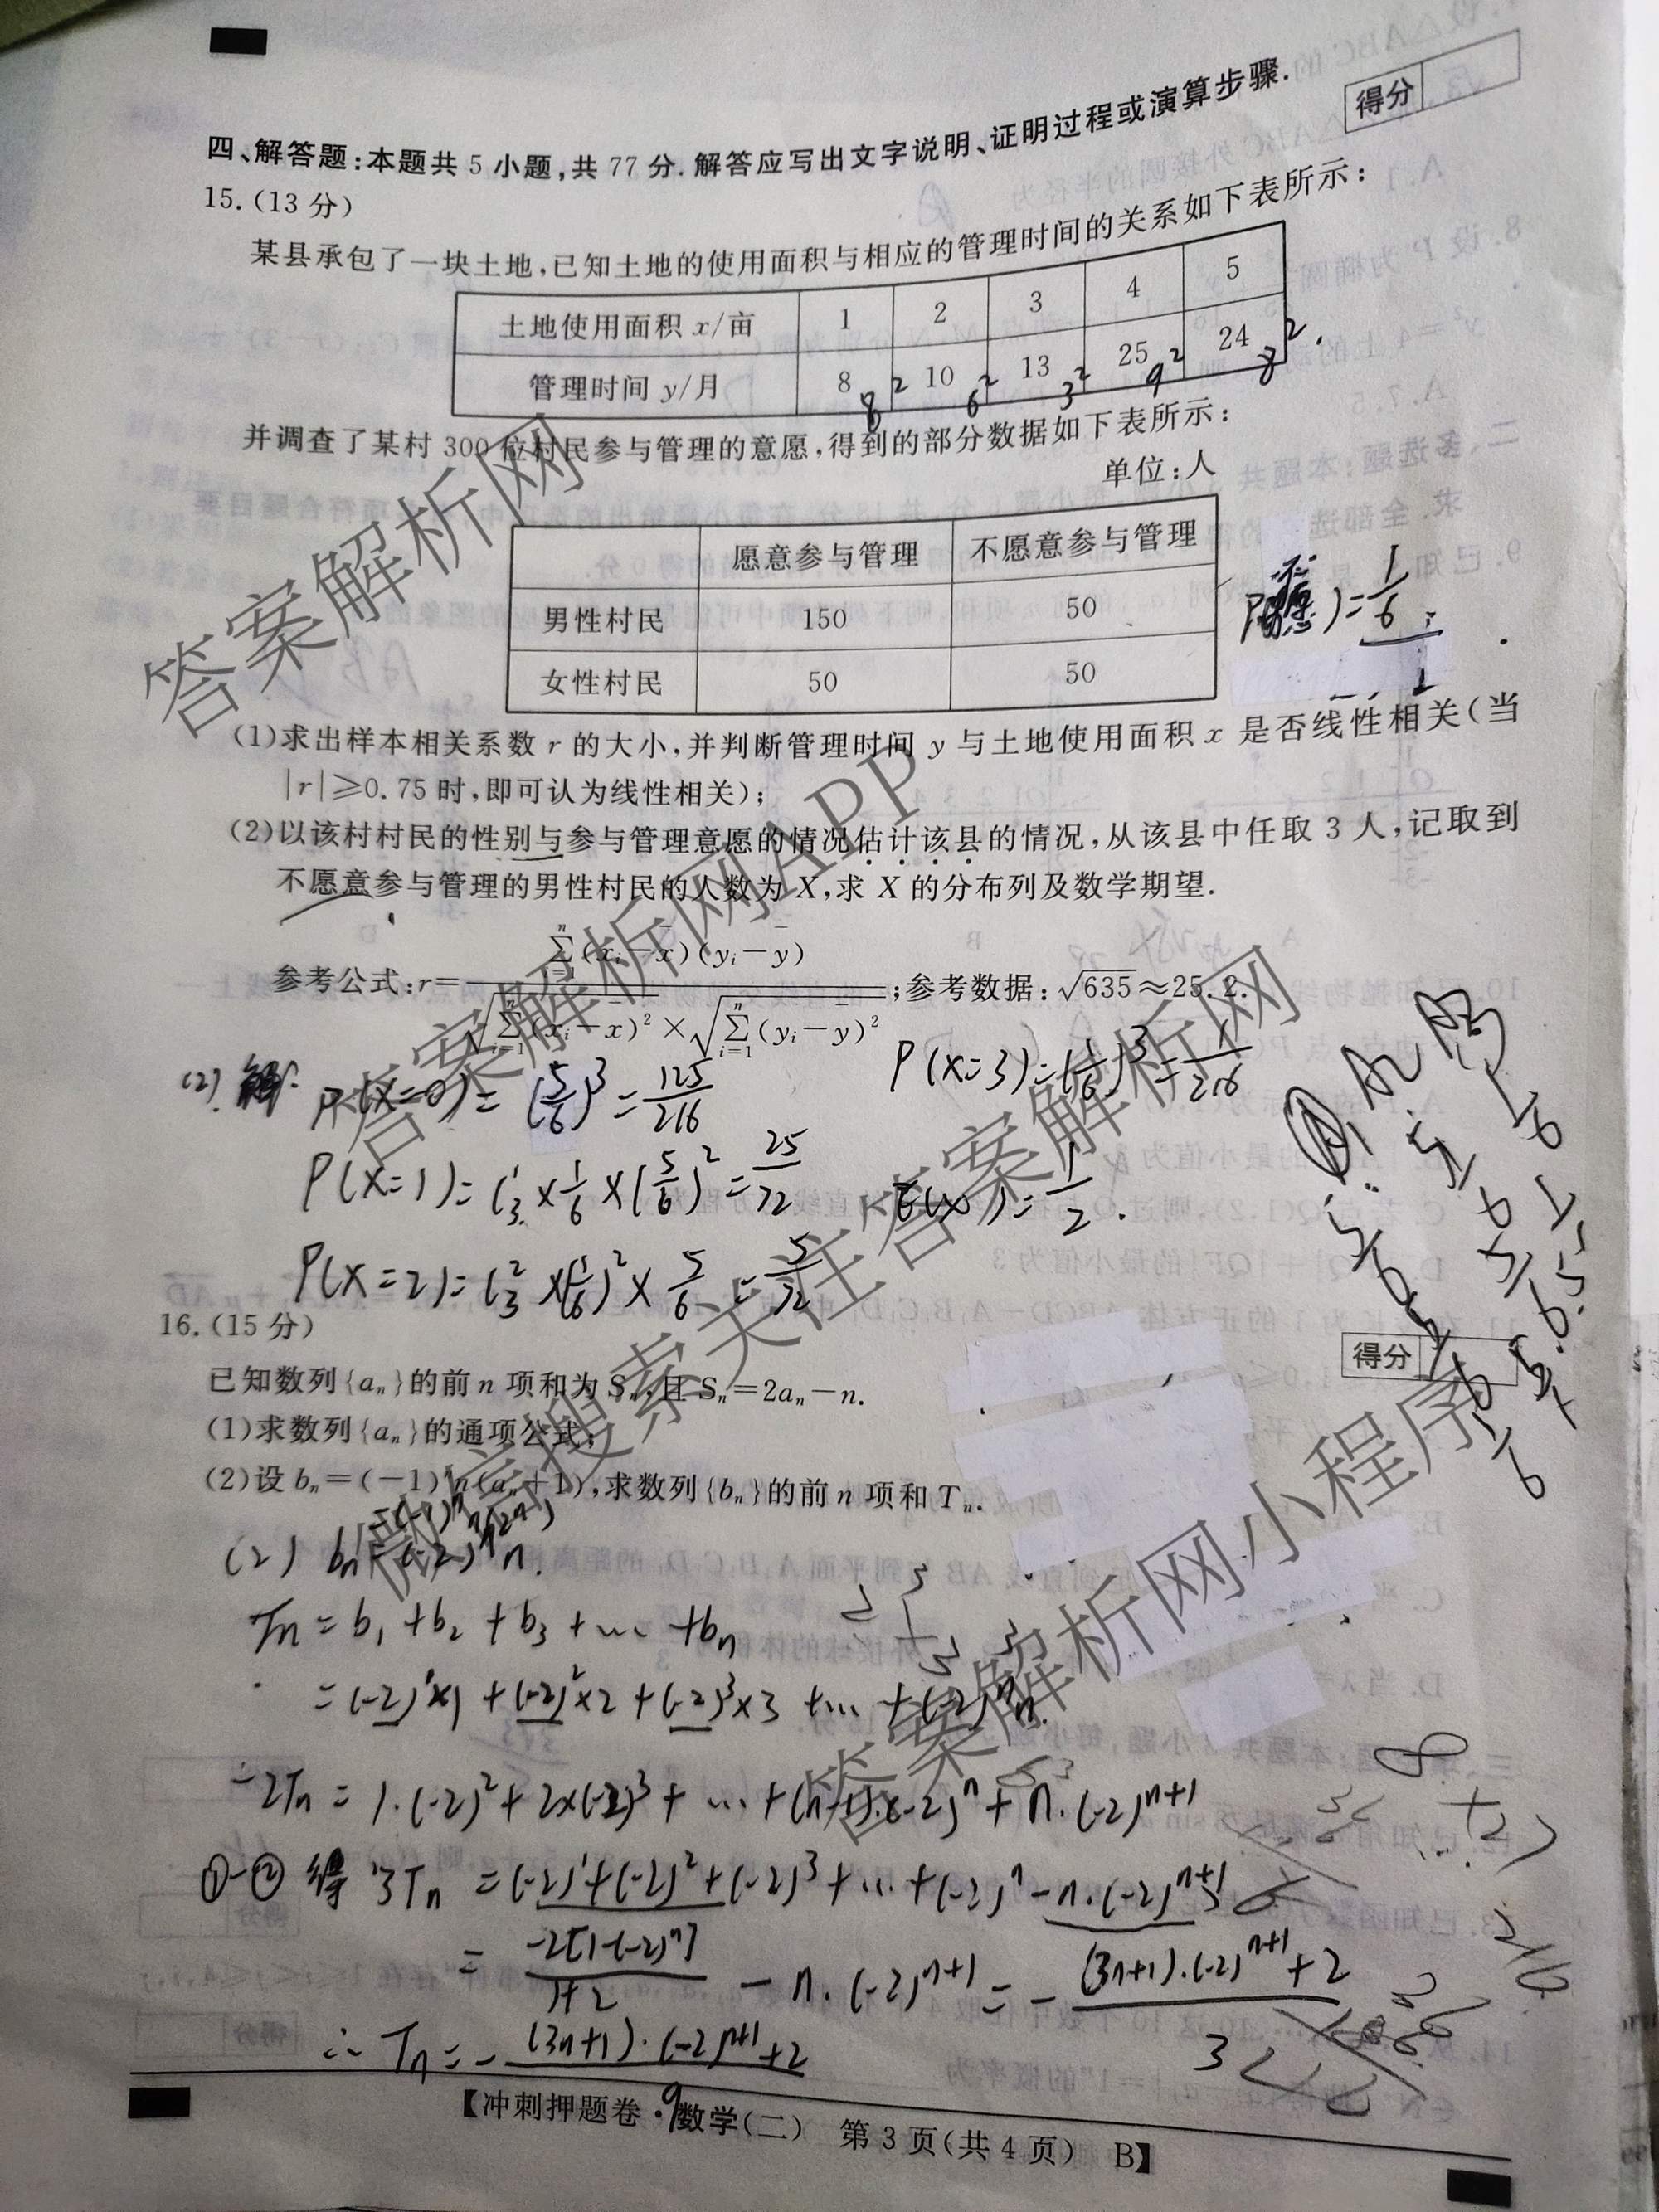 四、解答题:本题共 5 小题,共 77 分.解答应写出文字说明、证明过程或演算步骤.
得分
15.(13 分)
某县承包了一块土地,已知土地的使用面积与相应的管理时间的关系如下表所示:
土地使用面积 x/亩 1 2 3 4 5
管理时间 y/月 8 10 13 25 24
8² 6² 3² 9² 8².
并调查了某村 300 位村民参与管理的意愿,得到的部分数据如下表所示:
单位:人
愿意参与管理 不愿意参与管理
男性村民 150 50
女性村民 50 50
(1)求出样本相关系数 r 的大小,并判断管理时间 y 与土地使用面积 x 是否线性相关(当
|r|≥0.75 时,即可认为线性相关);
(2)以该村村民的性别与参与管理意愿的情况估计该县的情况,从该县中任取 3 人,记取到
不愿意参与管理的男性村民的人数为 X,求 X 的分布列及数学期望.
参考公式:r=∑(xᵢ−x̄)(yᵢ−ȳ)/√∑(xᵢ−x̄)²×√∑(yᵢ−ȳ)²;参考数据:√635≈25.2.
(2).解: P(X=0)=(5/6)³=125/216 P(X=3)=(1/6)³=1/216
P(X=1)=C₃¹×1/6×(5/6)²=25/72 E(X)=1/2.
P(X=2)=C₃²×(1/6)²×5/6=5/72
16.(15 分)
得分
已知数列{aₙ}的前 n 项和为 Sₙ,且 Sₙ=2aₙ−n.
(1)求数列{aₙ}的通项公式;
(2)设 bₙ=(−1)ⁿn(aₙ+1),求数列{bₙ}的前 n 项和 Tₙ.
(2) bₙ=(-2)ⁿn.
Tₙ=b₁+b₂+b₃+…+bₙ
=(-2)¹×1+(-2)²×2+(-2)³×3+…+(-2)ⁿn.
-2Tₙ=1·(-2)²+2×(-2)³+…+(n-1)·(-2)ⁿ+n·(-2)ⁿ⁺¹
①-②得 3Tₙ=(-2)¹+(-2)²+(-2)³+…+(-2)ⁿ-n·(-2)ⁿ⁺¹
=-2[1-(-2)ⁿ]/1+2 -n·(-2)ⁿ⁺¹=-(3n+1)·(-2)ⁿ⁺¹+2/3
∴Tₙ=-(3n+1)·(-2)ⁿ⁺¹+2/9
【冲刺押题卷·数学(二) 第 3 页(共 4 页) B】
答案解析网
答案解析网APP
微信搜索关注答案解析网
答案解析网小程序